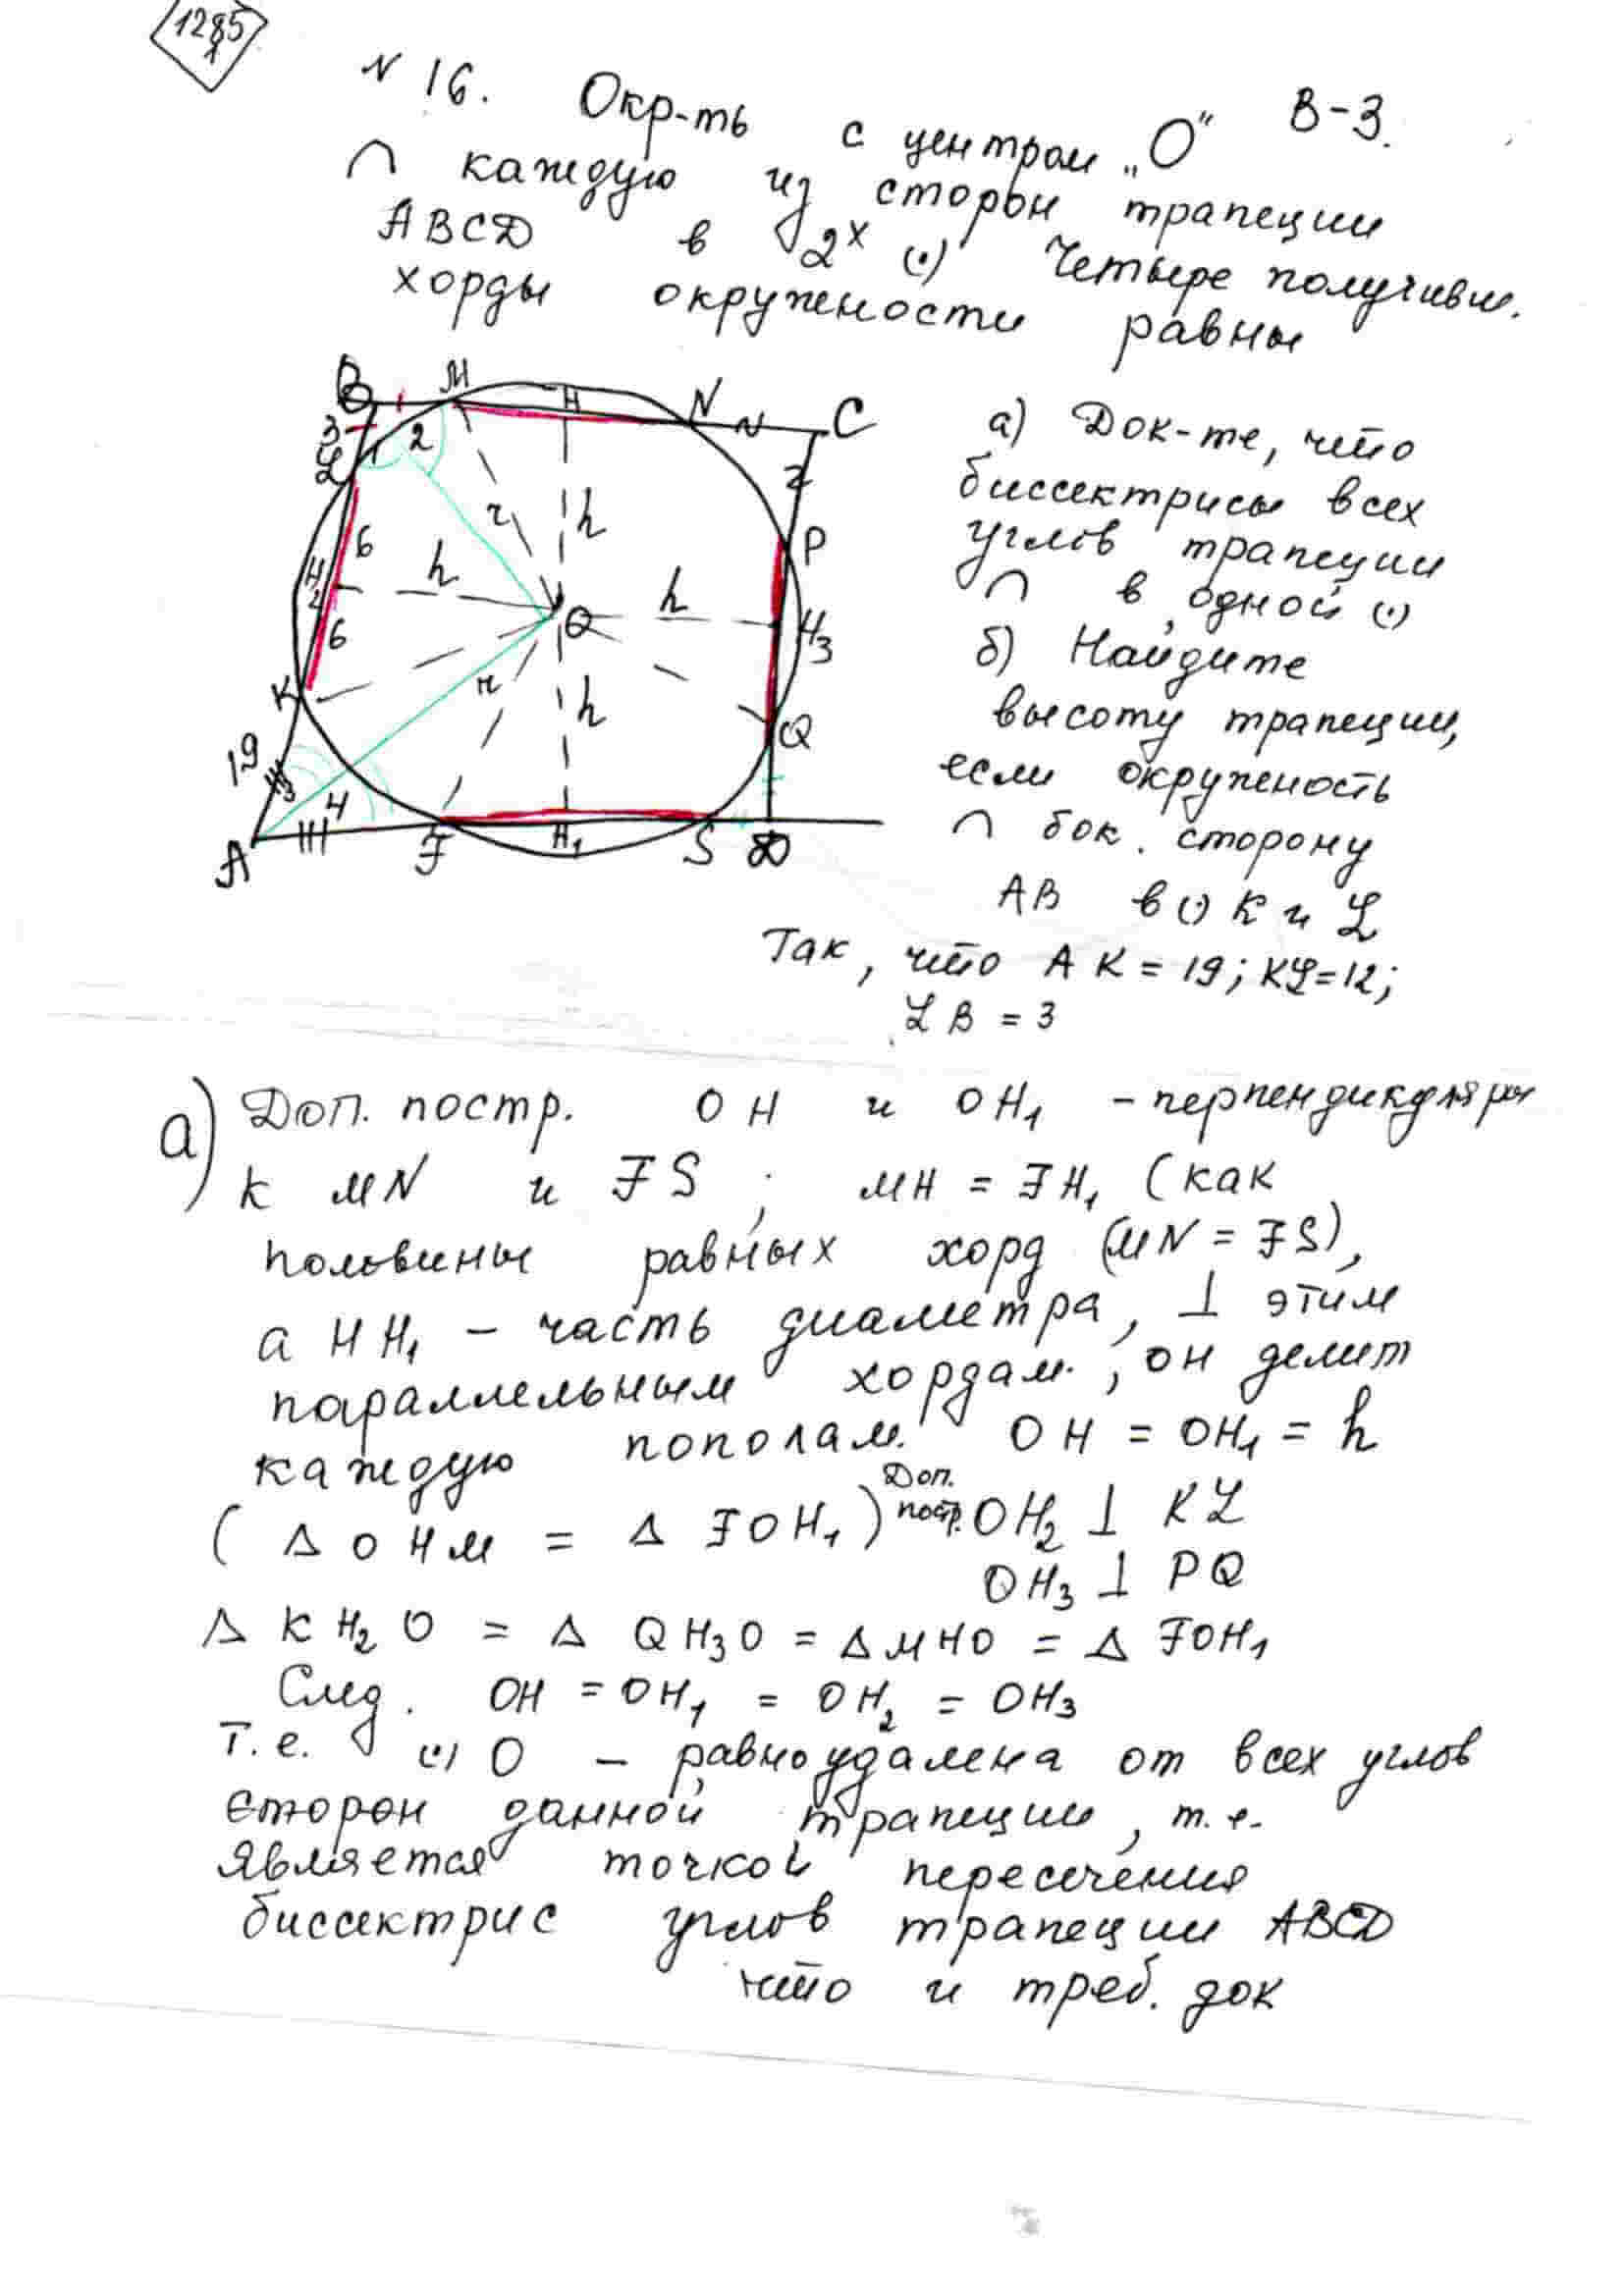 1285
N 16. Окр-ть с центром „О“ В-3.
∩ каждую из сторон трапеции
ABCD в 2х (·) Четыре получивш.
хорды окружености равны
B M H N C
3 2 N
L 1 2
6 r h P
H2 h h
O H3
6
K r h Q
19
3 4
A F H1 S D
а) Док-те, что
биссектрисы всех
углов трапеции
∩ в одной (·)
б) Найдите
высоту трапеции,
если окруженость
∩ бок. сторону
AB в (·) K и L
Так, что AK = 19; KL = 12;
LB = 3
а) Доп. постр. OH и OH1 - перпендикуляры
к MN и FS ; MH = FH1 (как
половины равных хорд (MN = FS),
а HH1 – часть диаметра, ⊥ этим
параллельным хордам. , он делит
каждую пополам. OH = OH1 = h
( Δ OHM = Δ FOH1 ) Доп. постр. OH2 ⊥ KL
OH3 ⊥ PQ
Δ KH2O = Δ QH3O = Δ MHO = Δ FOH1
След. OH = OH1 = OH2 = OH3
т.е. (·) O – равноудалена от всех углов
сторон данной трапеции, т.е.
является точкой пересечения
биссектрис углов трапеции ABCD
что и треб. док